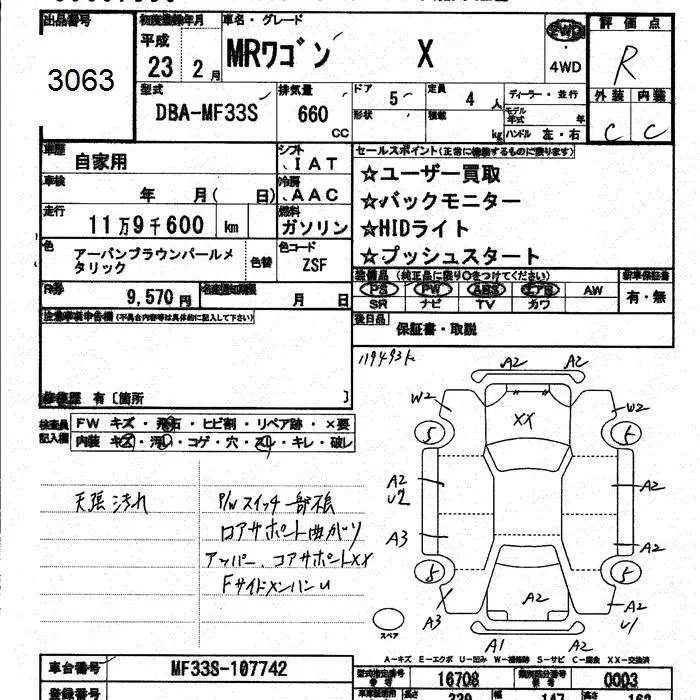 出品番号
3063
初度登録年月
平成
23 2 月
車名・グレード
MRワゴン X
2WD
・
4WD
評価点
R
外装 内装
C C
型式
DBA-MF33S
排気量
660
CC
ドア 5
形状
定員 4 人
積載 kg
ディーラー・並行
モデル年式 年
ハンドル 左・右
車歴 自家用
シフト IAT
車検 年 月( 日)
冷房 AAC
走行 11万9千600 km
燃料 ガソリン
色 アーバンブラウンパールメ
タリック
色替
色コード
ZSF
R券 9,570 円
名変通知期限
月 日
セールスポイント(正常に機能するものに限ります)
☆ユーザー買取
☆バックモニター
☆HIDライト
☆プッシュスタート
装備品 (純正品に限り○をつけてください)
PS PW ABS エアB AW
SR ナビ TV カワ
新車保証書
有・無
後日品
保証書・取説
注意事項申告欄(不具合内容等は具体的に記入して下さい)
修復歴 有〔箇所 〕
検査員
記入欄
FW キズ・飛石・ヒビ割・リペア跡・×要
内装 キズ・汚れ・コゲ・穴・スリ・キレ・破レ
119493K
天張汚れ
P/Wスイッチ一部不良
コアサポート曲がり
アッパー、コアサポートXX
FサイドメンバーU
A2 A2
W2 W2
XX
5 5
A2 A2
U2
A3 A2
5 5
A2
A3 A2
U1
A1 A2
スペア
A-キズ E-エクボ U-凹み W-補修跡 S-サビ C-腐食 XX-交換済
車台番号
MF33S-107742
型式指定番号
16708
類別区分番号
0003
登録番号
長さ 339 幅 147 高さ 162